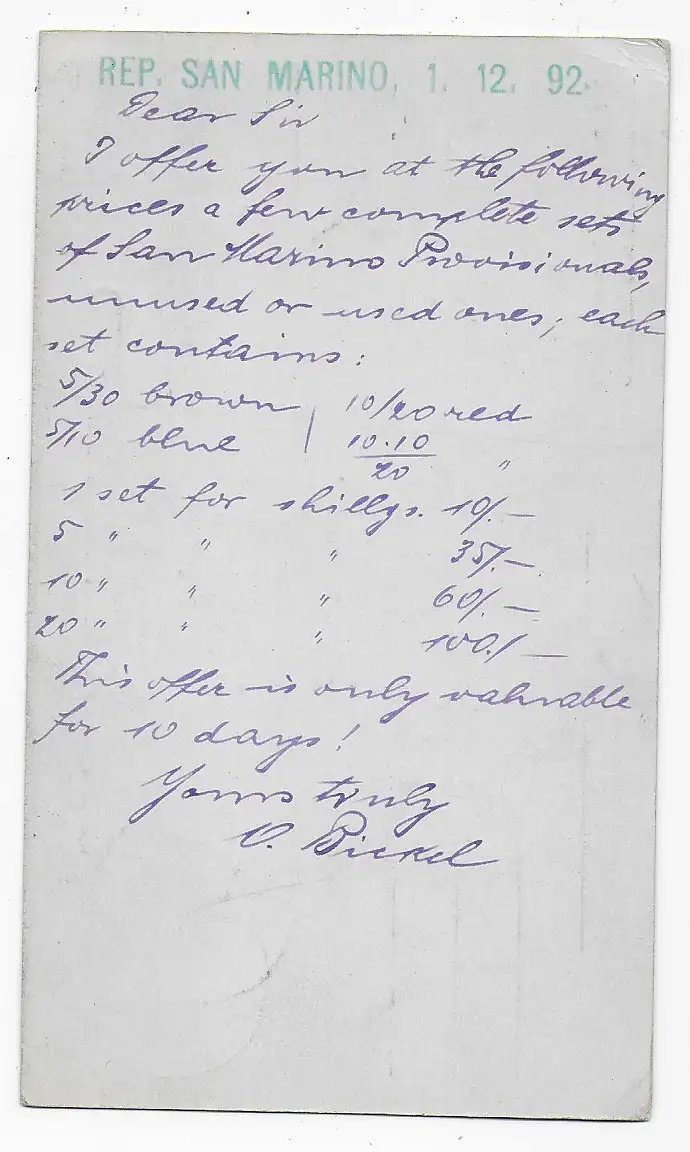 REP. SAN MARINO, 1. 12. 92.
Dear Sir
I offer you at the following
prices a few complete sets
of San Marino Provisionals,
unused or used ones; each
set contains:
5/30 brown | 10/20 red
5/10 blue | 10.10/20 "
1 set for shillgs. 10/.—
5 " " " 35/.—
10 " " " 60/.—
20 " " " 100./—
This offer is only valuable
for 10 days!
Yours truly
O. Bickel